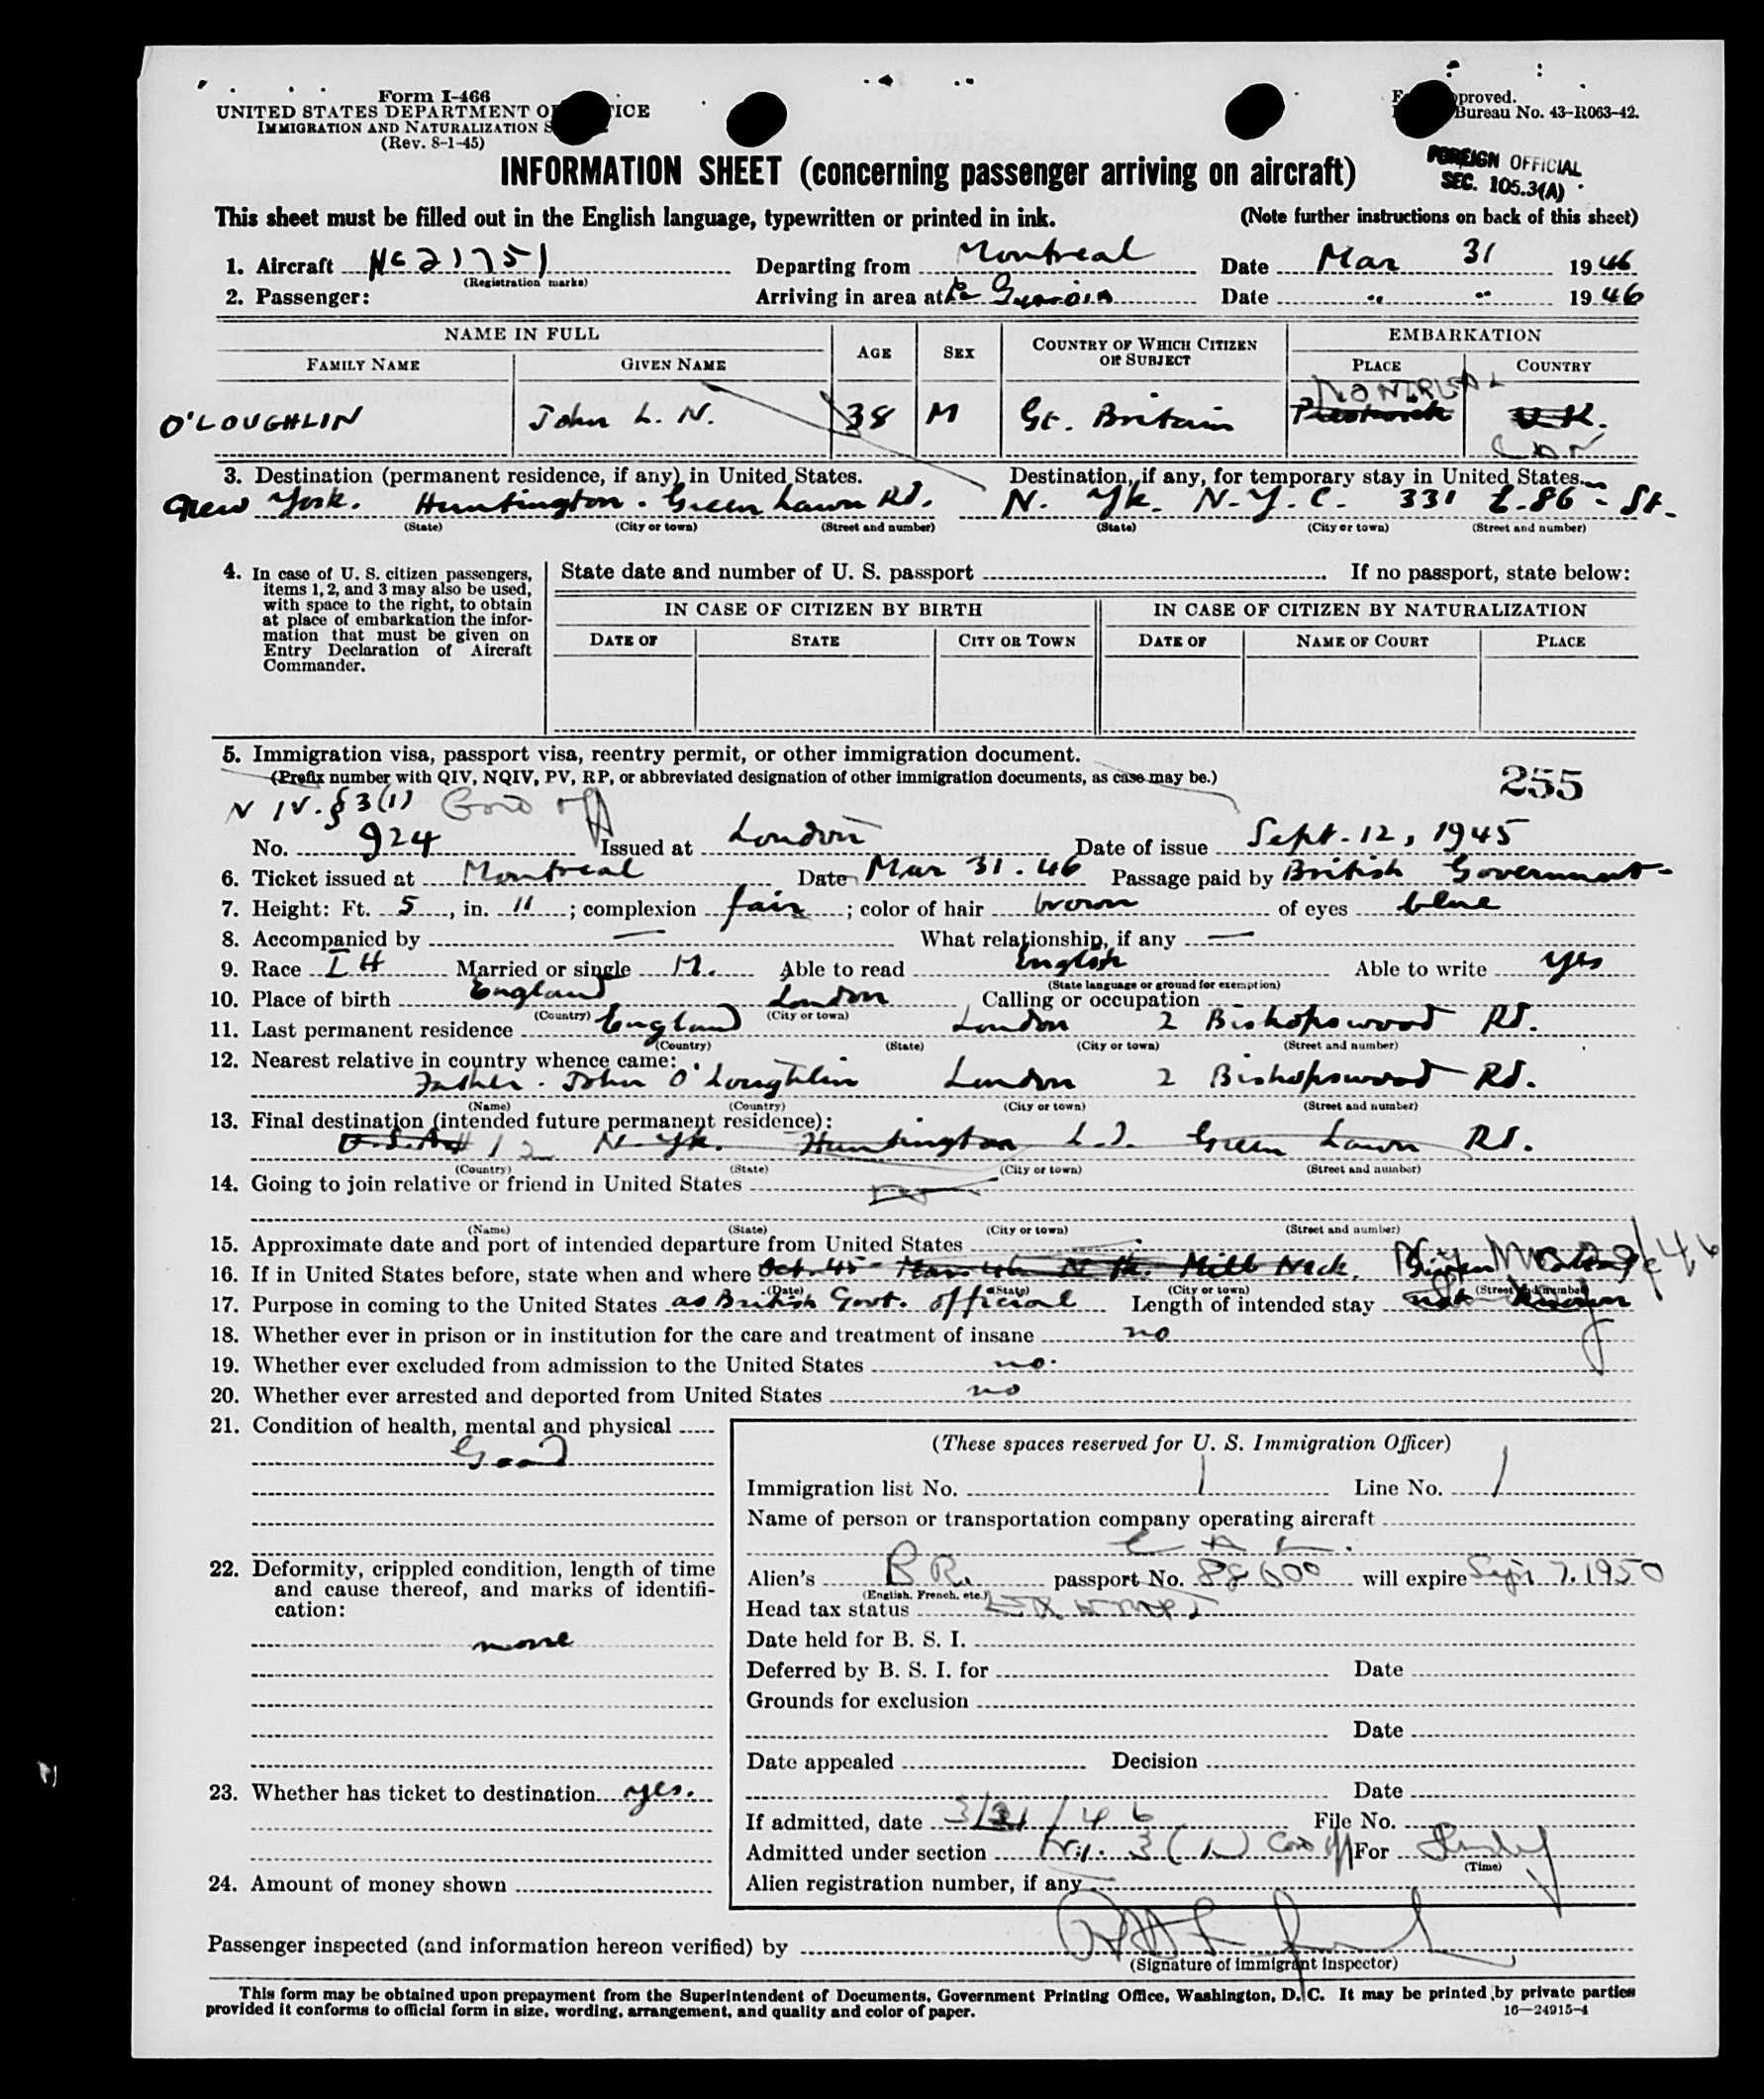 Form I-466
UNITED STATES DEPARTMENT OF ICE
IMMIGRATION AND NATURALIZATION S
(Rev. 8-1-45)
proved.
Bureau No. 43-R063-42.
FOREIGN OFFICIAL
SEC. 105.3(A)
INFORMATION SHEET (concerning passenger arriving on aircraft)
This sheet must be filled out in the English language, typewritten or printed in ink. (Note further instructions on back of this sheet)
1. Aircraft NC21751 Departing from Montreal Date Mar 31 1946
(Registration marks)
2. Passenger: Arriving in area at Date " " 1946
NAME IN FULL AGE SEX COUNTRY OF WHICH CITIZEN OR SUBJECT EMBARKATION
FAMILY NAME GIVEN NAME PLACE COUNTRY
MONTREAL
O'LOUGHLIN John L. N. 38 M Gt. Britain Prestwick U.K.
CAN
3. Destination (permanent residence, if any) in United States. Destination, if any, for temporary stay in United States.
New York. Huntington. Green Lawn Rd. N. Yk. N.Y.C. 331 E. 86 - St.
(State) (City or town) (Street and number) (State) (City or town) (Street and number)
4. In case of U. S. citizen passengers, items 1, 2, and 3 may also be used, with space to the right, to obtain at place of embarkation the information that must be given on Entry Declaration of Aircraft Commander.
State date and number of U. S. passport If no passport, state below:
IN CASE OF CITIZEN BY BIRTH IN CASE OF CITIZEN BY NATURALIZATION
DATE OF STATE CITY OR TOWN DATE OF NAME OF COURT PLACE
5. Immigration visa, passport visa, reentry permit, or other immigration document.
(Prefix number with QIV, NQIV, PV, RP, or abbreviated designation of other immigration documents, as case may be.)
255
N IV. § 3(1) Govt off
No. 924 Issued at London Date of issue Sept. 12, 1945
6. Ticket issued at Montreal Date Mar 31. 46 Passage paid by British Government
7. Height: Ft. 5, in. 11; complexion fair; color of hair brown of eyes blue
8. Accompanied by — What relationship, if any —
9. Race IH Married or single M. Able to read English Able to write yes
(State language or ground for exemption)
10. Place of birth England London Calling or occupation
(Country) (City or town)
11. Last permanent residence England London 2 Bishopswood Rd.
(Country) (State) (City or town) (Street and number)
12. Nearest relative in country whence came:
Father - John O'Loughlin London 2 Bishopswood Rd.
(Name) (Country) (City or town) (Street and number)
13. Final destination (intended future permanent residence):
U.S.A. N. Yk. Huntington L.I. Green Lawn Rd.
(Country) (State) (City or town) (Street and number)
14. Going to join relative or friend in United States no
(Name) (State) (City or town) (Street and number)
15. Approximate date and port of intended departure from United States
16. If in United States before, state when and where Oct. 45 - N. Yk. Mill Neck.
(Date) (State) (City or town) (Street and number)
17. Purpose in coming to the United States as British Govt. official Length of intended stay not known
18. Whether ever in prison or in institution for the care and treatment of insane no
19. Whether ever excluded from admission to the United States no.
20. Whether ever arrested and deported from United States no
21. Condition of health, mental and physical
Good
(These spaces reserved for U. S. Immigration Officer)
Immigration list No. 1 Line No. 1
Name of person or transportation company operating aircraft
C A L.
22. Deformity, crippled condition, length of time and cause thereof, and marks of identification:
none
Alien's BR. passport No. 88600 will expire Sept 7. 1950
(English, French, etc.)
Head tax status EXEMPT
Date held for B. S. I.
Deferred by B. S. I. for Date
Grounds for exclusion
Date
Date appealed Decision
23. Whether has ticket to destination yes.
Date
If admitted, date 3/31/46 File No.
Admitted under section 3(1) Gov off For
(Time)
24. Amount of money shown
Alien registration number, if any
Passenger inspected (and information hereon verified) by
(Signature of Immigrant Inspector)
This form may be obtained upon prepayment from the Superintendent of Documents, Government Printing Office, Washington, D. C. It may be printed by private parties
provided it conforms to official form in size, wording, arrangement, and quality and color of paper.
16—24915-4